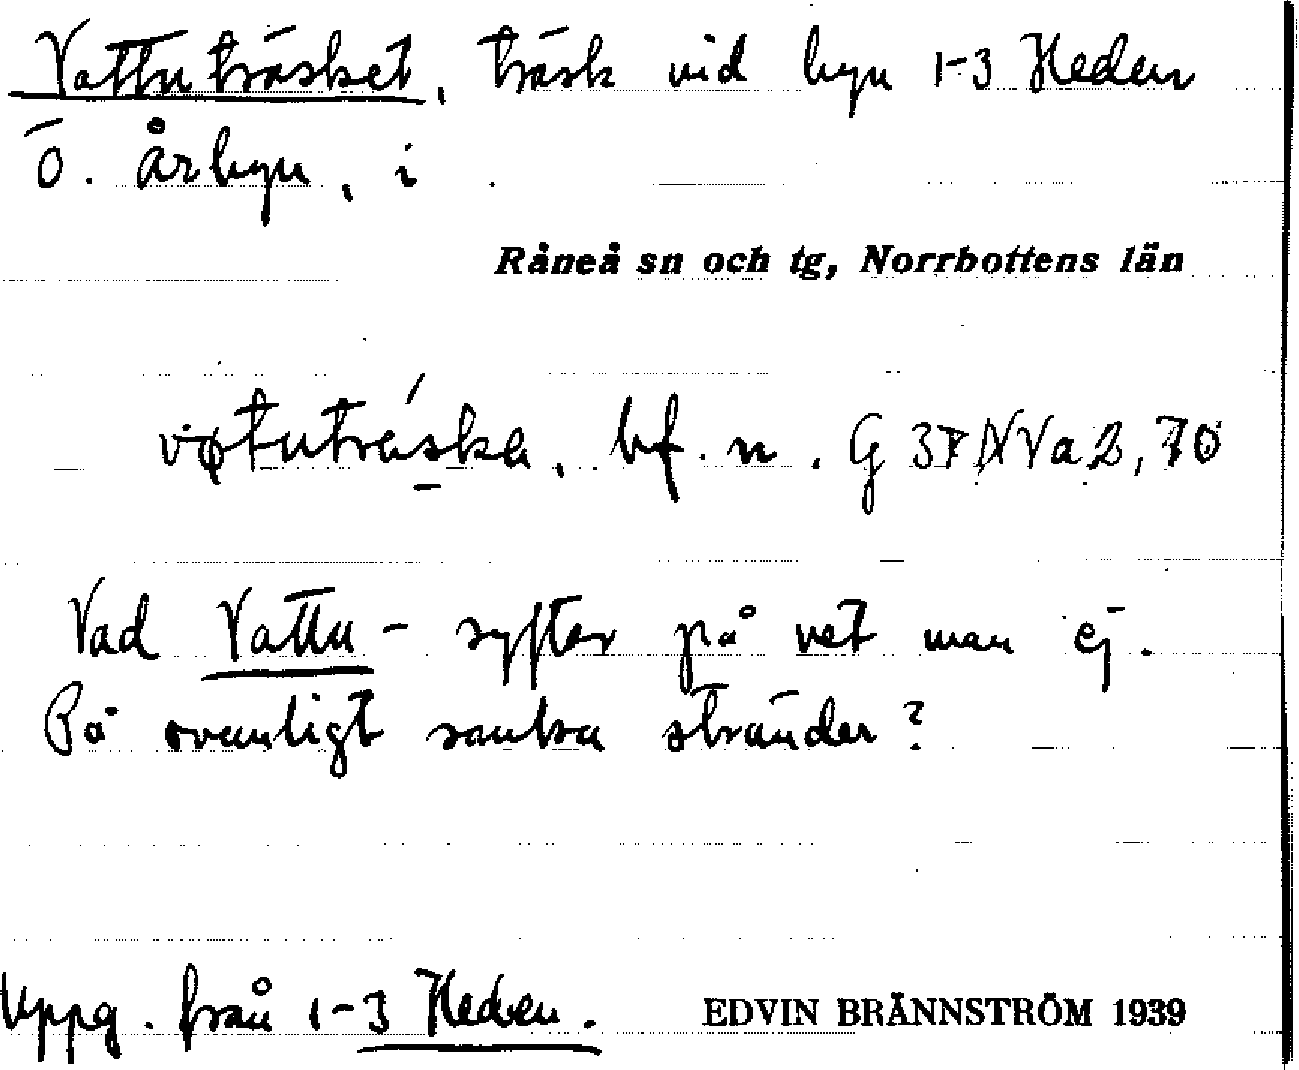 Vattuträsket, träsk vid byn 1-3 Heden
Ö. årbyn, i
Råneå sn och tg, Norrbottens län
bf. n. G 37 NVa2, 70
Vad Vattu- syftar på vet man ej.
På ovanligt sanka stränder?
Uppg. från 1-3 Heden. EDVIN BRÄNNSTRÖM 1939